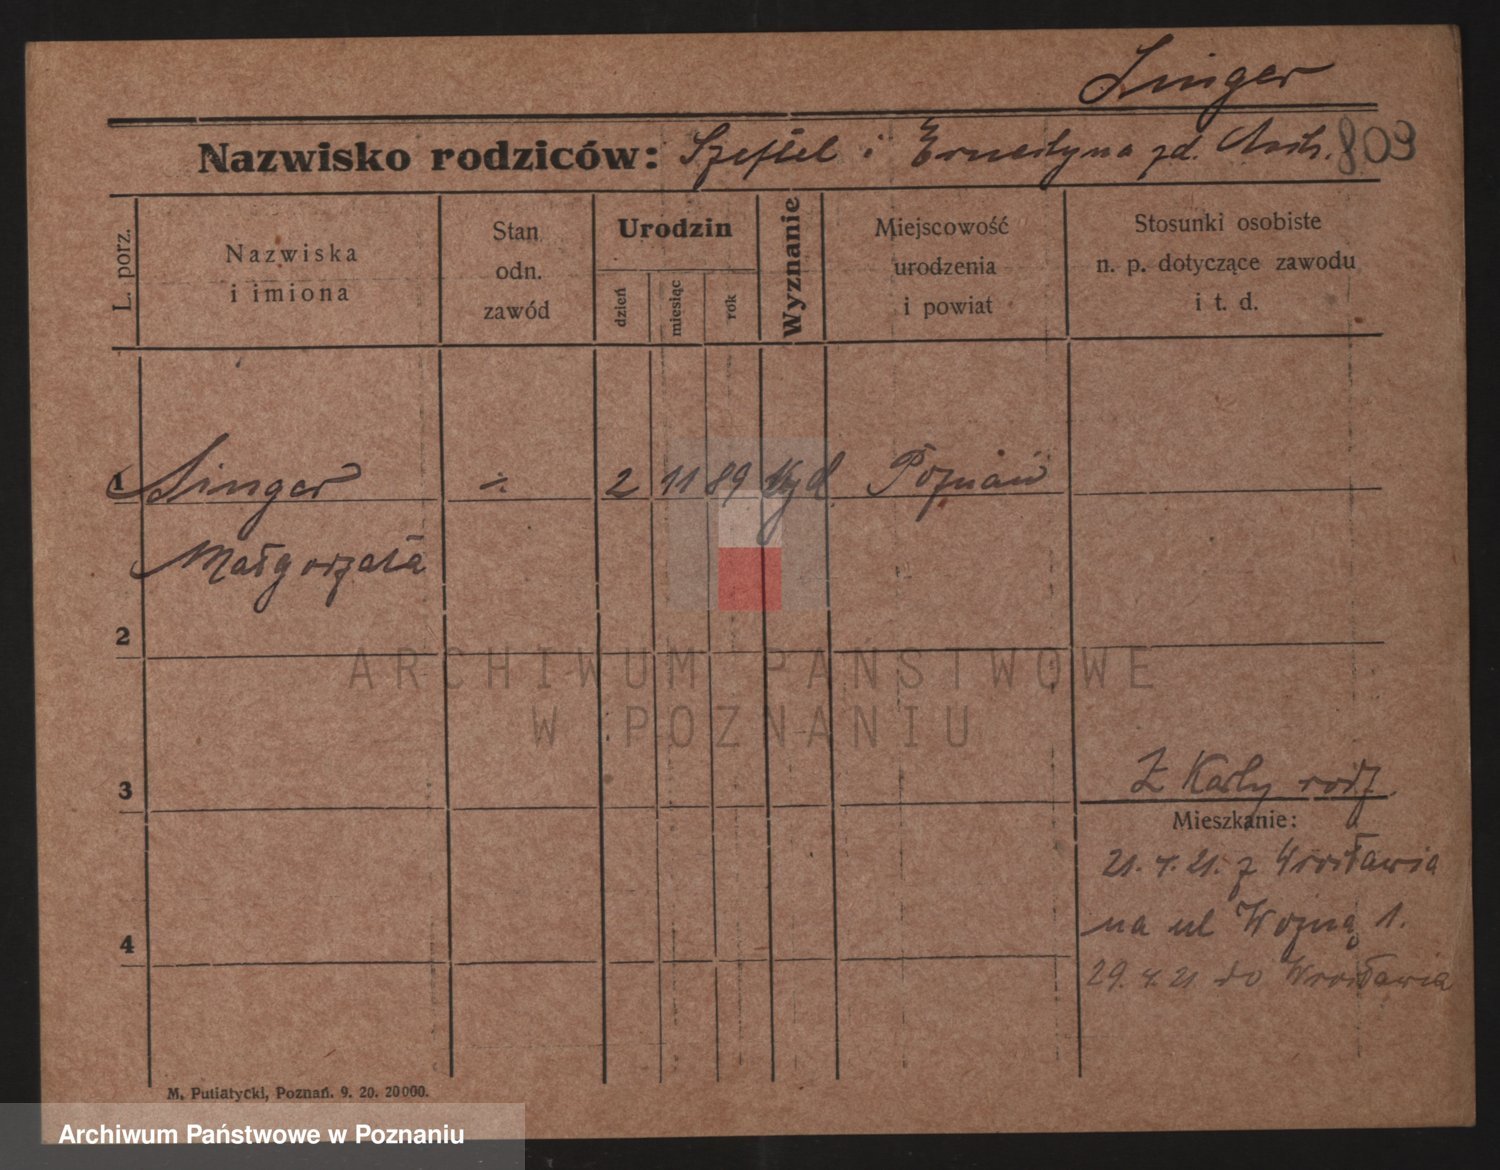 Singer
Nazwisko rodziców: Szeftel i Ernestyna zd. 809
L. porz.
Nazwiska
i imiona
Stan
odn.
zawód
Urodzin
dzień
miesiąc
rok
Wyznanie
Miejscowość
urodzenia
i powiat
Stosunki osobiste
n. p. dotyczące zawodu
i t. d.
1 Singer ÷ 2 11 89 żyd. Poznań
Małgorzata
2
ARCHIWUM PAŃSTWOWE
W POZNANIU
3
Z Karty rodz.
Mieszkanie:
21. 4. 21. z Wrocławia
na ul Wozną 1.
4
29. 4. 21 do Wrocławia
M. Putiatycki, Poznań. 9. 20. 20000.
Archiwum Państwowe w Poznaniu